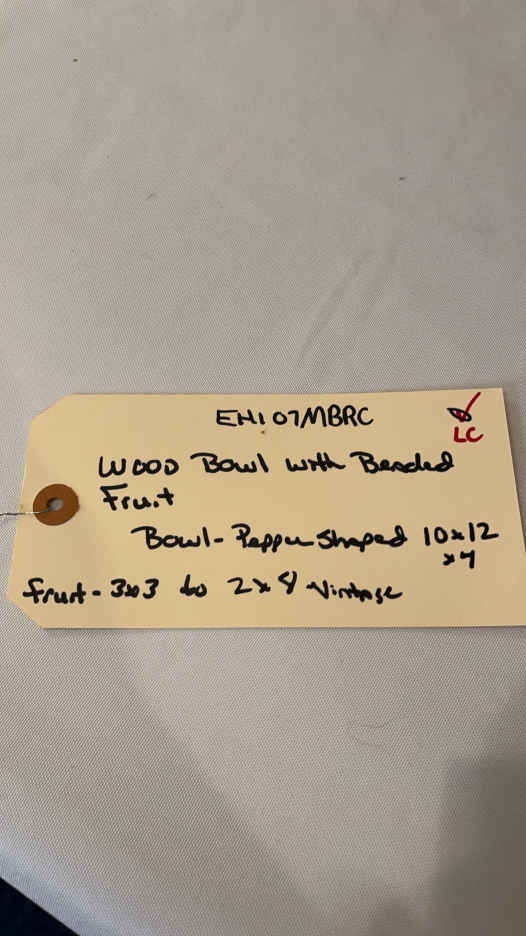 EH107MBRC
LC
Wood Bowl with Beaded
Fruit
Bowl - Pepper Shaped 10x12
x4
fruit - 3x3 to 2x8 Vintage